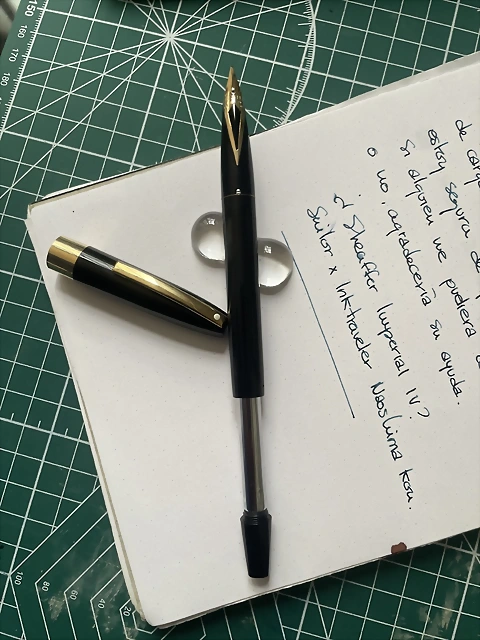 de carga
estoy segura de
si alguien me pudiera
o no, agradecería su ayuda.
¿ Sheaffer Imperial IV?
Sailor x Inktraveler Naoshima Kou.
150
160
170
180
100
80
60
40
20